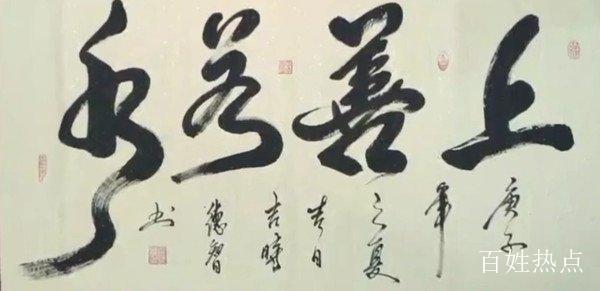 上善若水
庚子
年
之夏
吉日
吉時
德智
书
百姓热点